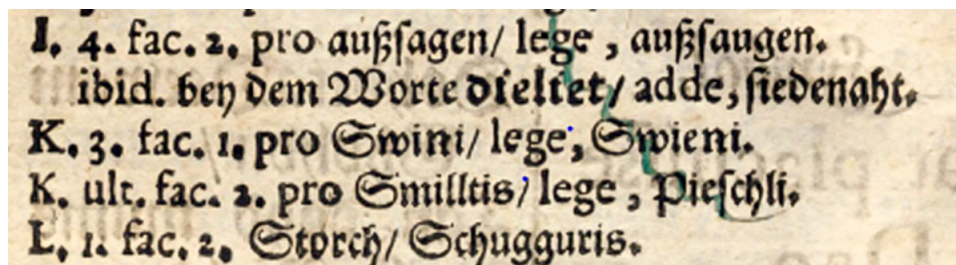 I. 4. fac. 2. pro außſagen/ lege, außſaugen.
ibid. bey dem Worte dieliet/ adde, ſiedenaht.
K. 3. fac. 1. pro Swini/ lege, Swieni.
K. ult. fac. 2. pro Smilltis/ lege, Pieſchli.
L. 1. fac. 2. Storch/ Schugguris.